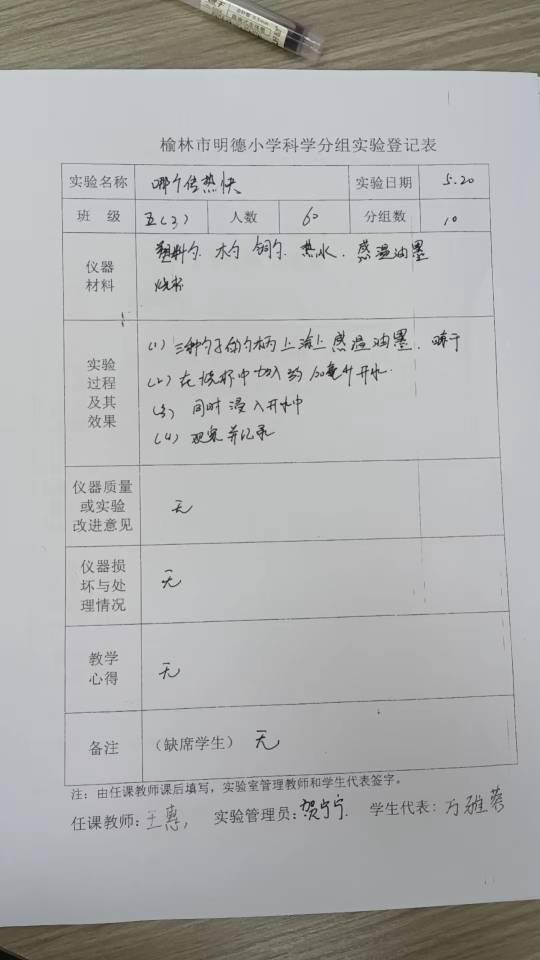 榆林市明德小学科学分组实验登记表
实验名称 哪个传热快 实验日期 5.20
班 级 五(3) 人数 60 分组数 10
仪器
材料
塑料勺. 木勺 铜勺. 热水. 感温油墨
烧杯
实验
过程
及其
效果
(1) 三种勺子的勺柄上涂上感温油墨. 晾干
(2) 在烧杯中加入约 100毫升开水.
(3) 同时浸入开水中
(4) 观察并记录
仪器质量
或实验
改进意见
无
仪器损
坏与处
理情况
无
教学
心得
无
备注 (缺席学生) 无
注：由任课教师课后填写，实验室管理教师和学生代表签字。
任课教师：王惠 实验管理员：贺宁宁 学生代表：